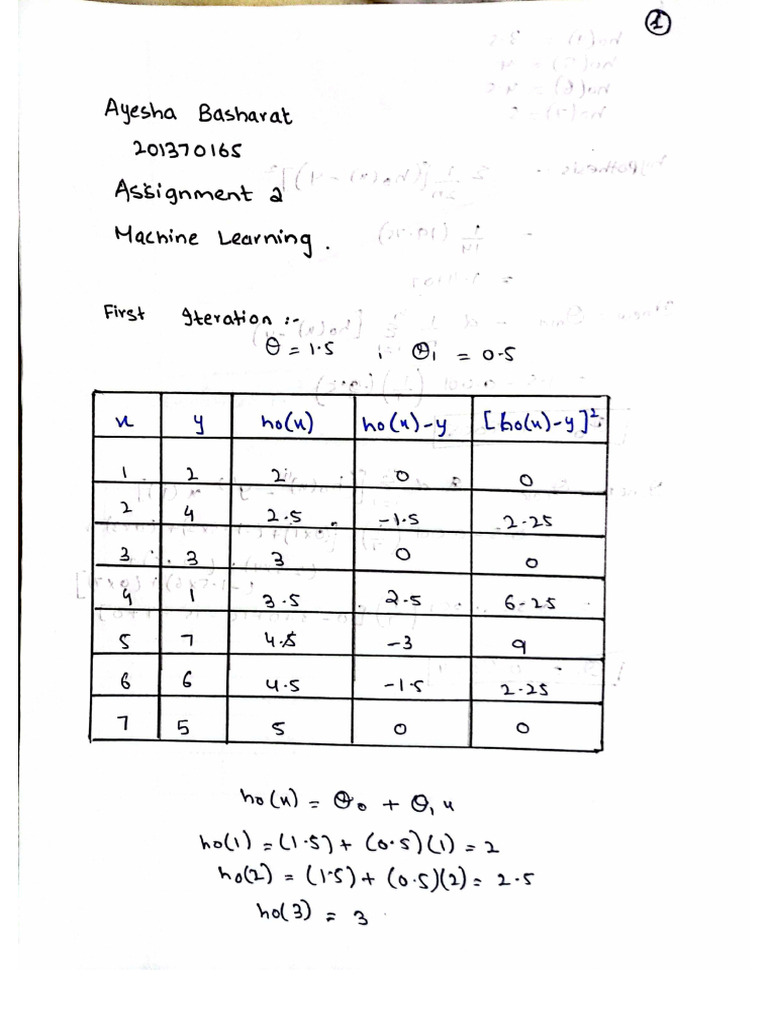 1
Ayesha Basharat
201370165
Assignment 2
Machine Learning.
First Iteration :-
θ = 1.5 , θ₁ = 0.5
x y ho(x) ho(x)-y [ho(x)-y]²
1 2 2 0 0
2 4 2.5 -1.5 2.25
3 3 3 0 0
4 1 3.5 2.5 6.25
5 7 4.5 -3 9
6 6 4.5 -1.5 2.25
7 5 5 0 0
ho(x) = θ₀ + θ₁x
ho(1) = (1.5) + (0.5)(1) = 2
ho(2) = (1.5) + (0.5)(2) = 2.5
ho(3) = 3